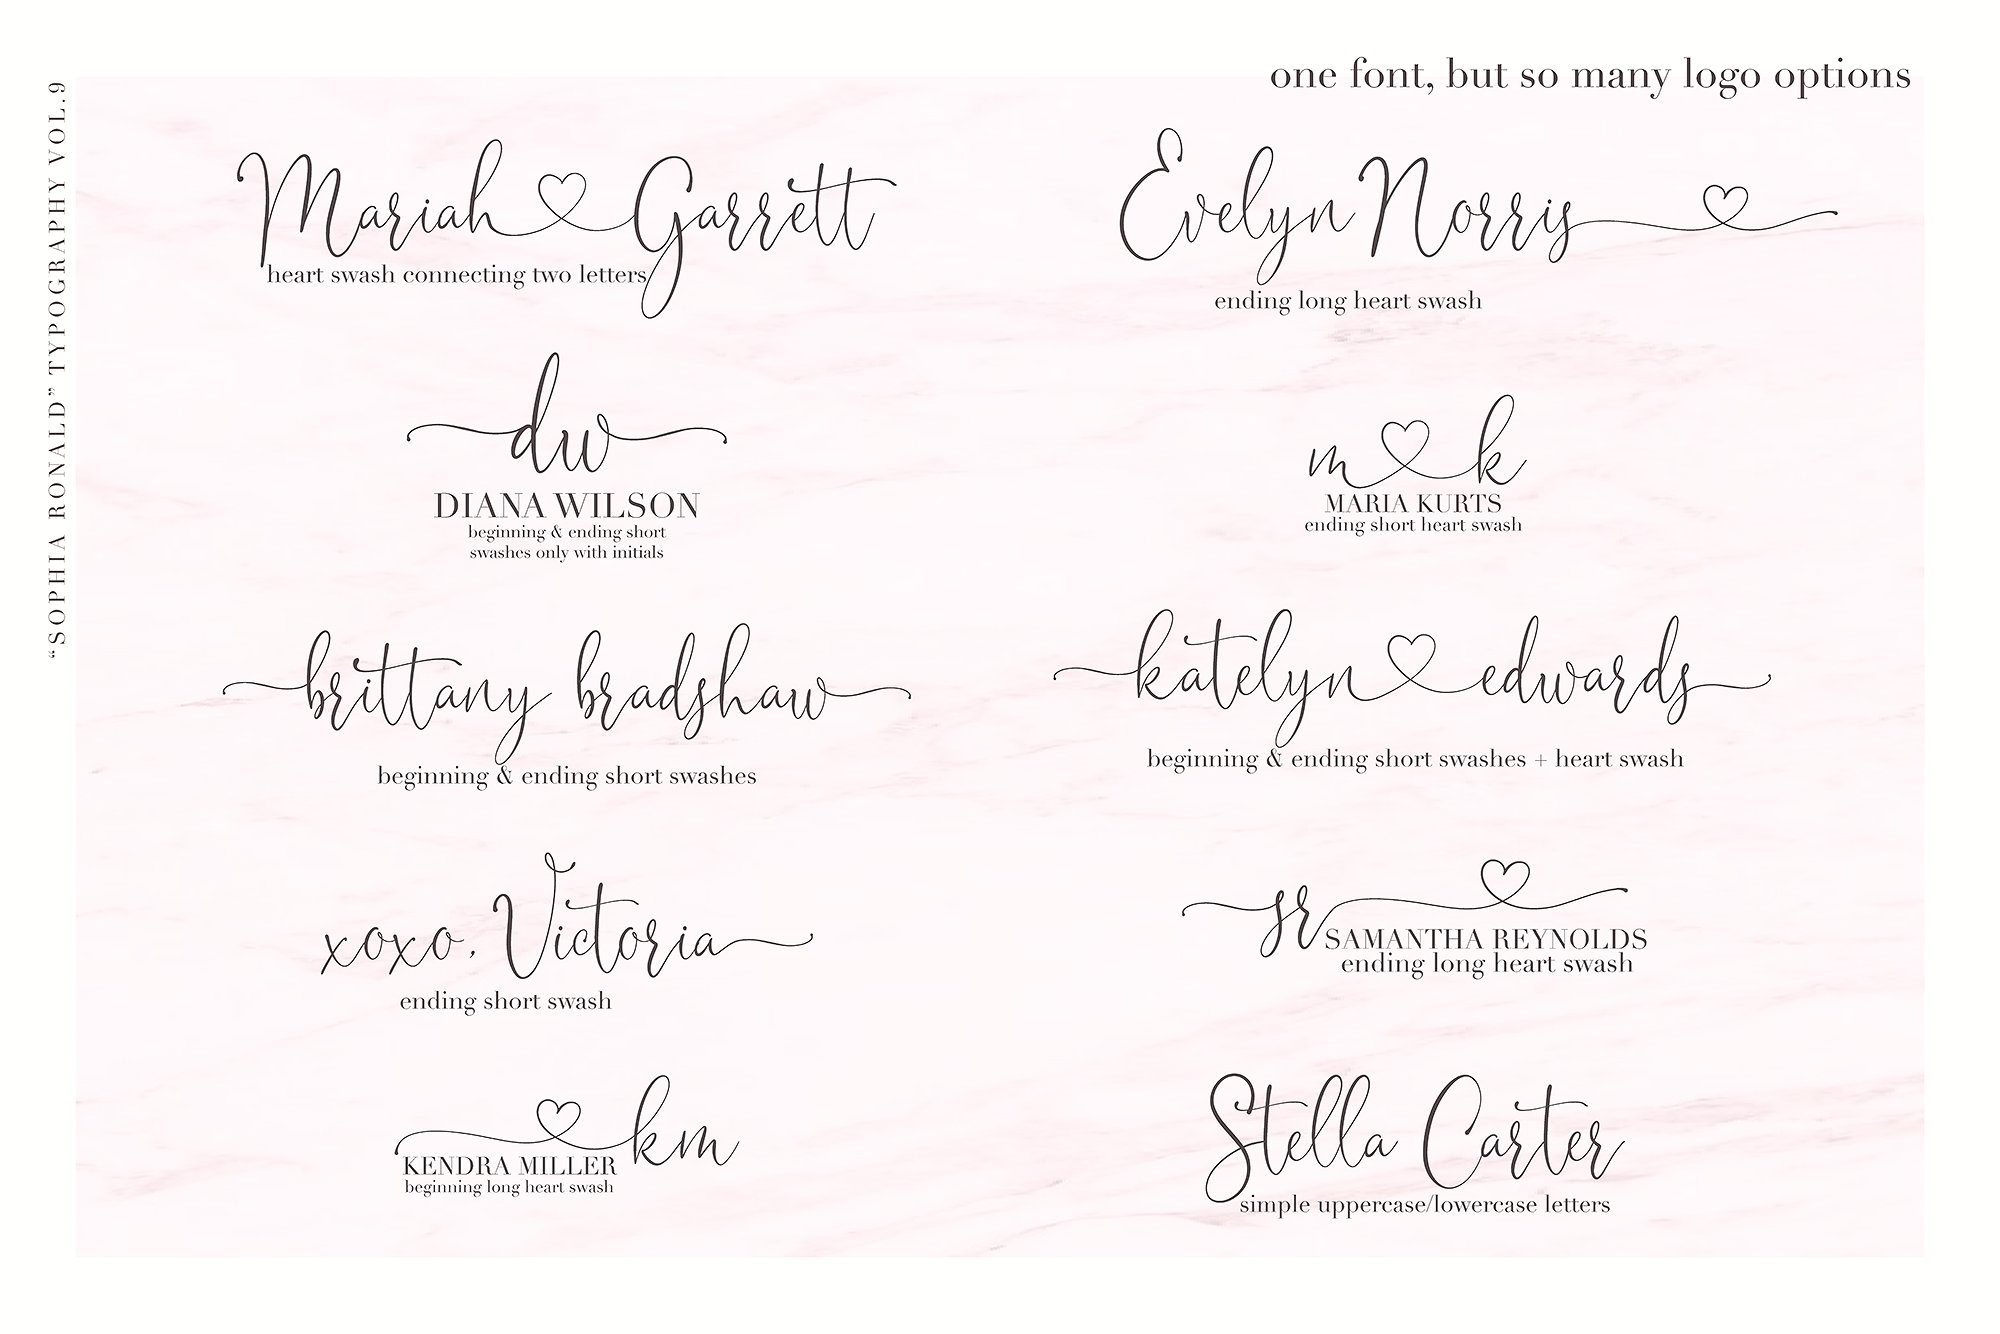 one font, but so many logo options
“SOPHIA RONALD” TYPOGRAPHY VOL.9
Mariah Garrett
heart swash connecting two letters
Evelyn Norris
ending long heart swash
dw
DIANA WILSON
beginning & ending short
swashes only with initials
m k
MARIA KURTS
ending short heart swash
brittany bradshaw
beginning & ending short swashes
katelyn edwards
beginning & ending short swashes + heart swash
xoxo, Victoria
ending short swash
sr
SAMANTHA REYNOLDS
ending long heart swash
km
KENDRA MILLER
beginning long heart swash
Stella Carter
simple uppercase/lowercase letters